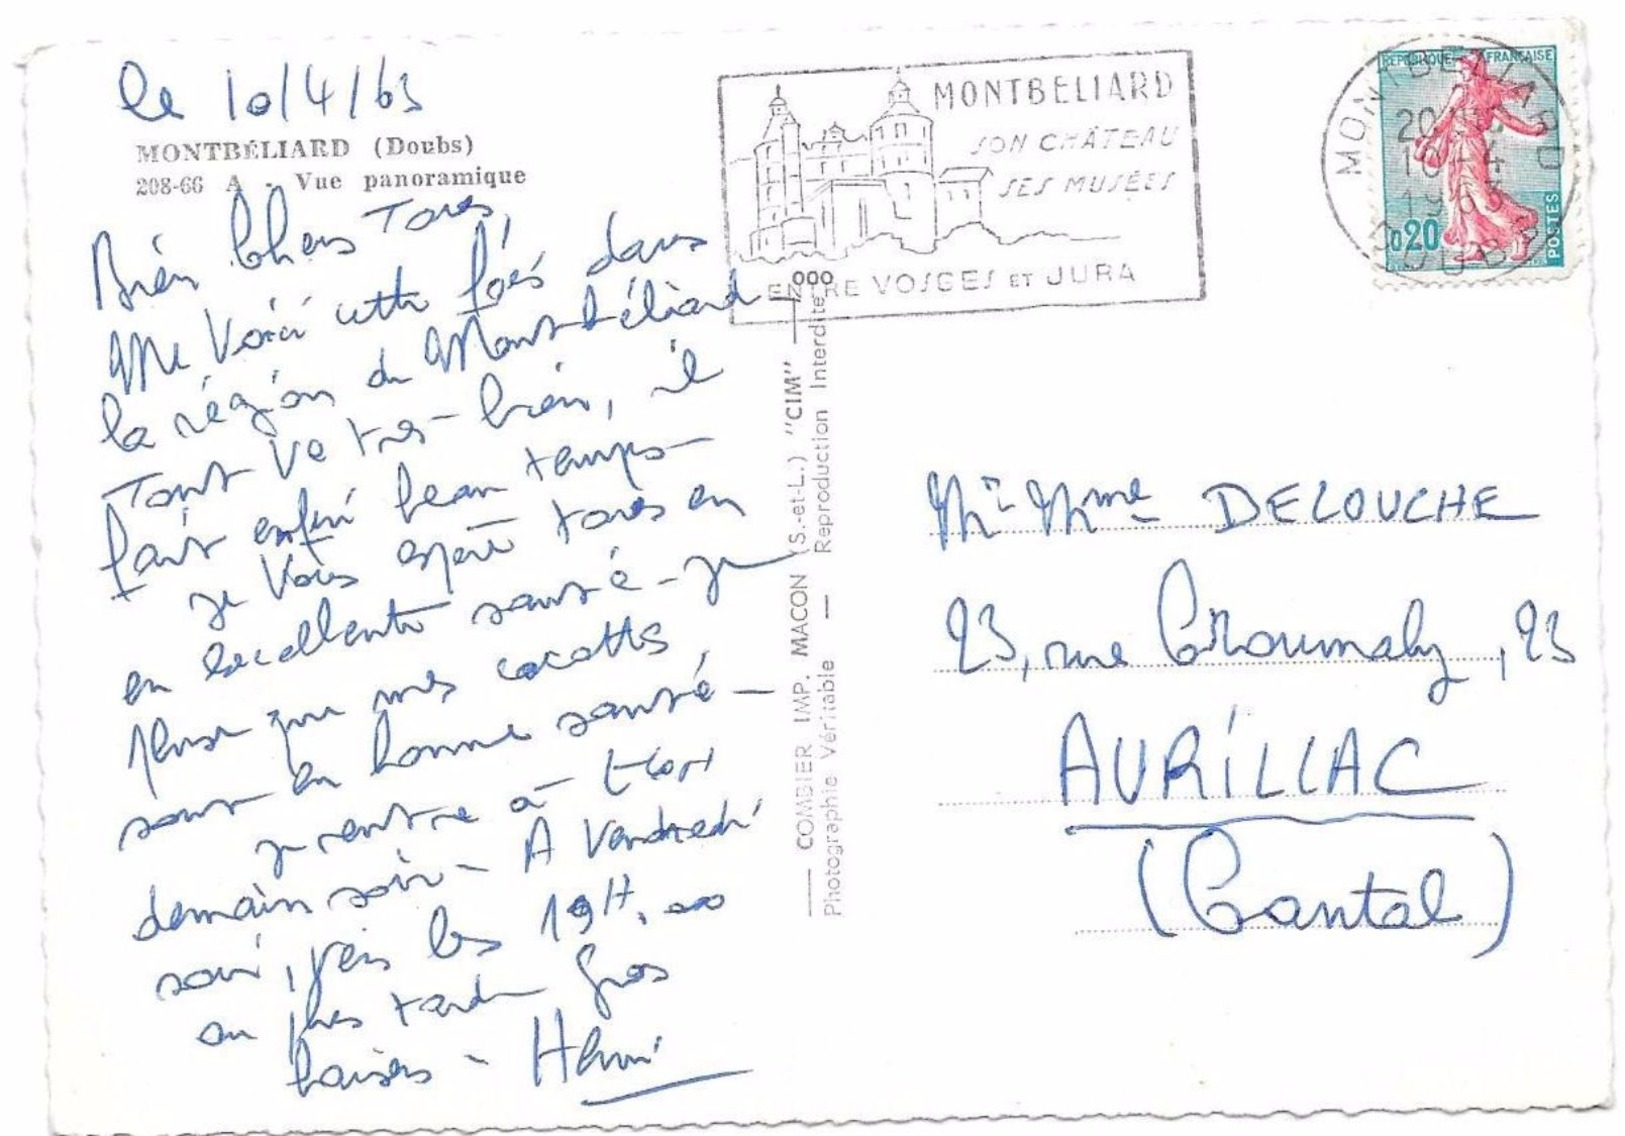 le 10/4/63
MONTBÉLIARD (Doubs)
208-66 A - Vue panoramique
Bien Chers Tous,
Me voici cette fois dans
la région de Montbéliard -
Tout va très-bien, il
fait enfin beau temps -
je vous espère tous en
en excellente santé - je
pense que mes cocottes
sont en bonne santé -
je rentre à
demain soir - A Vendredi
soir, vers les 19H,00
au plus tard - Gros
baisers - Henri
MONTBELIARD
SON CHÂTEAU
SES MUSÉES
ENTRE VOSGES ET JURA
000
COMBIER IMP. MACON (S.-et-L.) "CIM"
Photographie Véritable — Reproduction Interdite
REPUBLIQUE FRANÇAISE
0,20
POSTES
MONTBELIARD
20
10-4
1963
DOUBS
Mr Mme DELOUCHE
23, rue Croumaly, 23
AURILLAC
(Cantal)